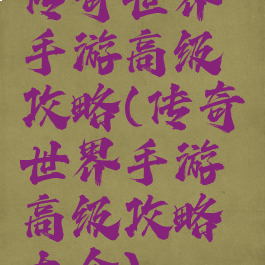 传奇世界
手游高级
攻略(传奇
世界手游
高级攻略
大全)